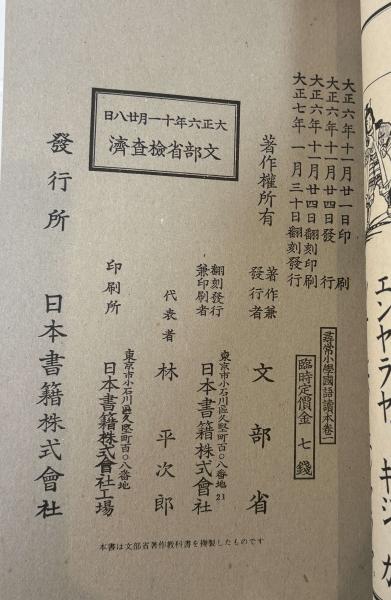 大正六年十一月廿一日印刷
大正六年十一月廿四日發行
大正六年十一月廿四日翻刻印刷
大正七年一月三十日翻刻發行
尋常小學國語讀本卷一
臨時定價金七錢
著作權所有
著作兼發行者
文部省
大正六年十一月廿八日
文部省檢查濟
翻刻發行兼印刷者
東京市小石川區久堅町百〇八番地
日本書籍株式會社
代表者
林平次郎
印刷所
東京市小石川區久堅町百〇八番地
日本書籍株式會社工場
發行所
日本書籍株式會社
本書は文部省著作教科書を複製したものです